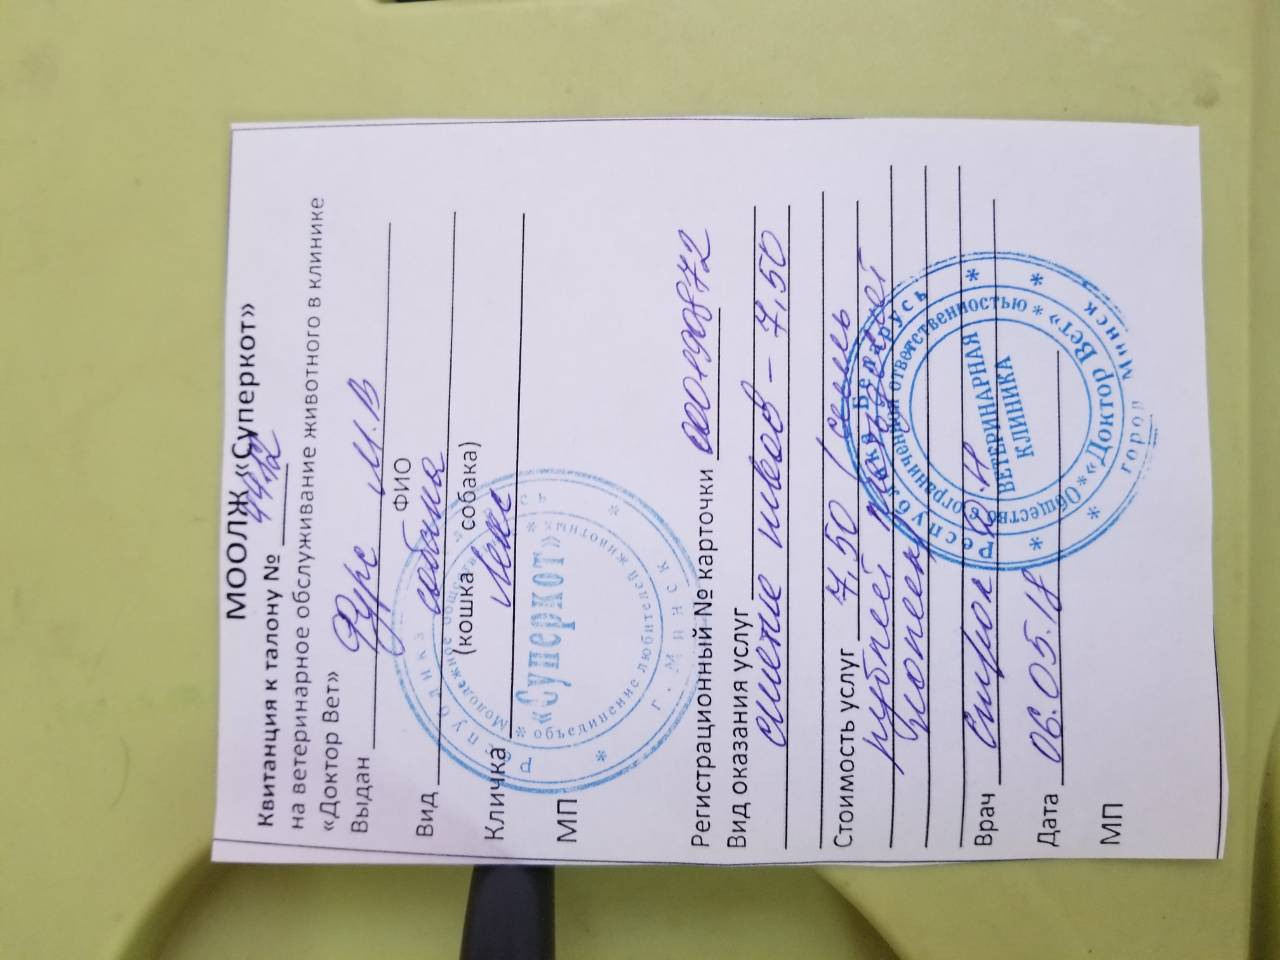 МООЛЖ «Суперкот»
Квитанция к талону № 4412
на ветеринарное обслуживание животного в клинике
«Доктор Вет»
Выдан Фурс М.В
ФИО
Вид собака
(кошка, собака)
Кличка
МП
Республика Беларусь
Молодежное общественное
объединение любителей животных
«Суперкот»
г. Минск
Регистрационный № карточки 000090872
Вид оказания услуг
снятие швов – 7,50
Стоимость услуг 7,50 (семь
рублей пятьдесят
копеек
Врач
Дата 06.05.18
МП
Республика Беларусь
Общество с ограниченной ответственностью
«Доктор Вет»
ВЕТЕРИНАРНАЯ
КЛИНИКА
город Минск